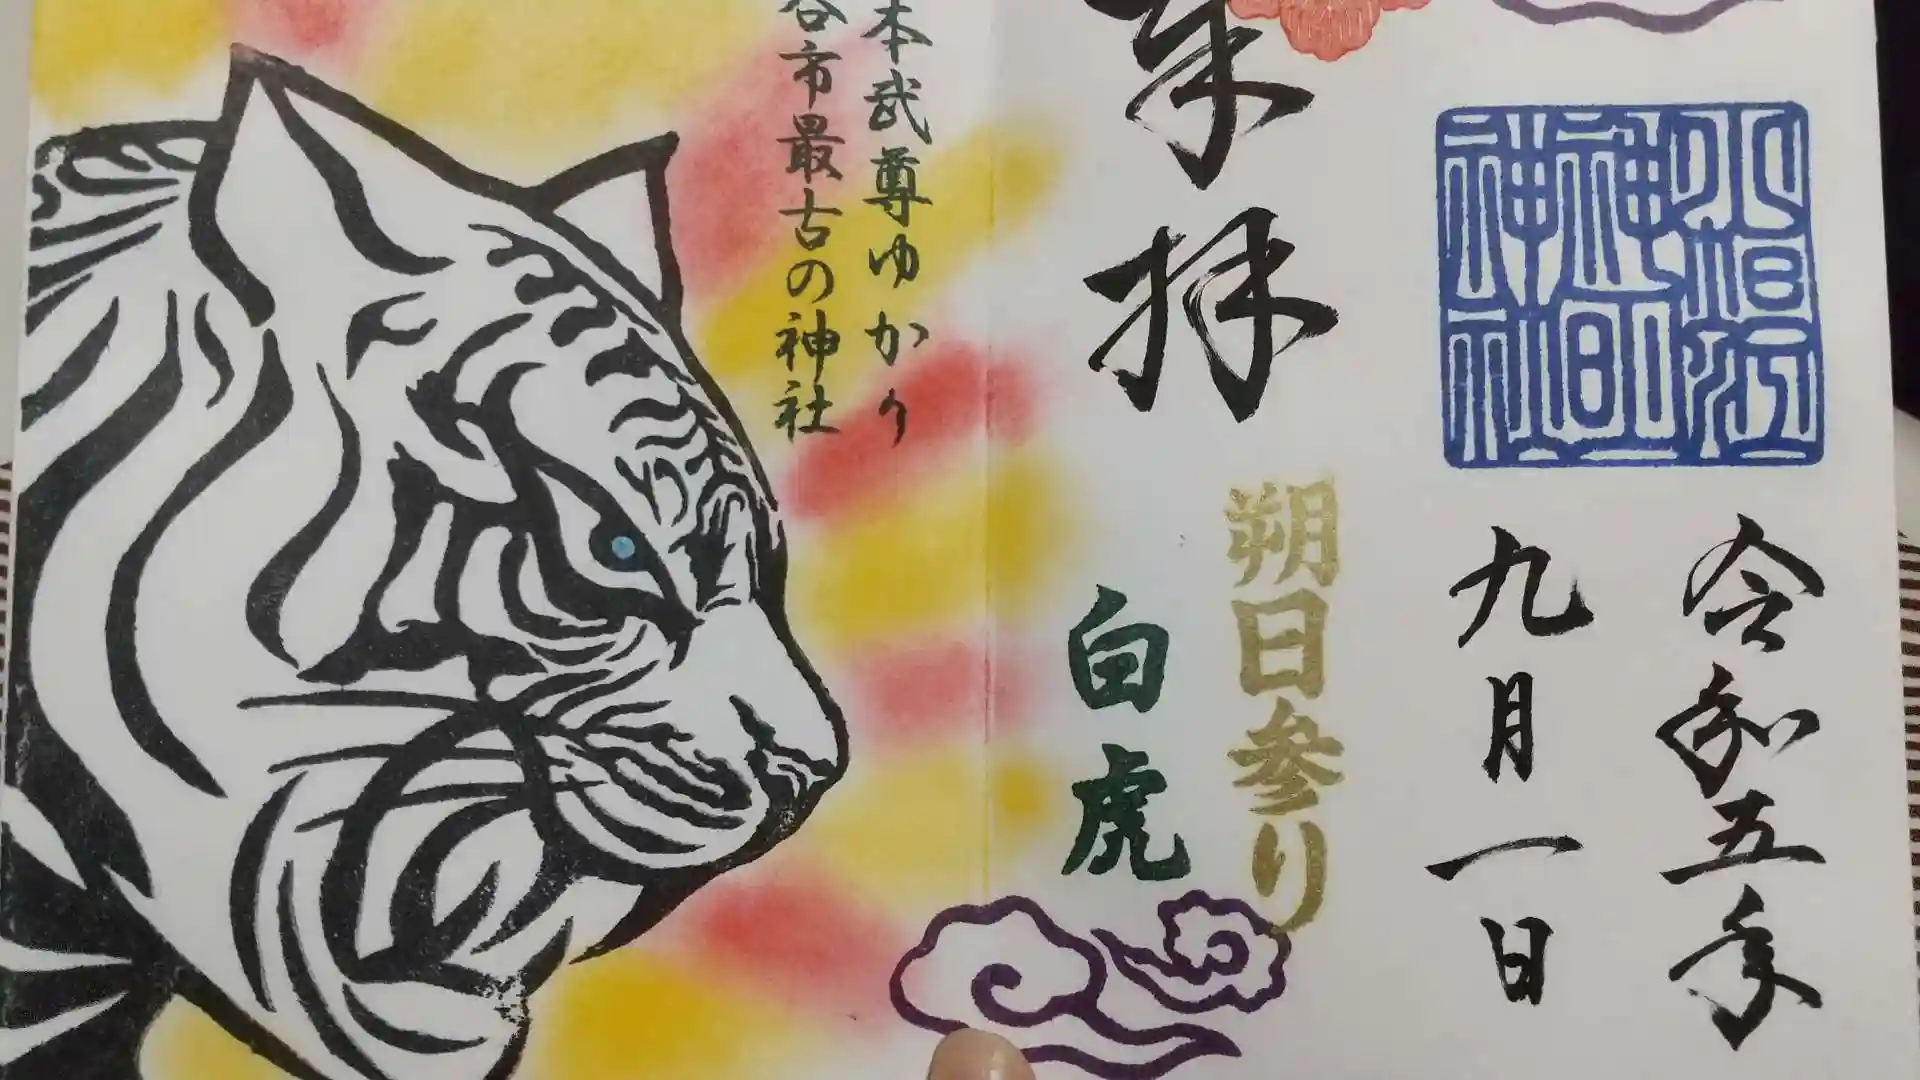 令和五年
九月一日
小垣江
神明
神社
朔日参り
奉拝
白虎
本武尊ゆかり
谷市最古の神社